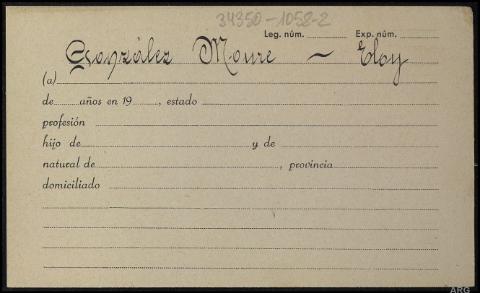 34350-1058-2
Leg. núm. Exp. núm.
González Moure - Eloy
(a)
de años en 19 , estado
profesión
hijo de y de
natural de , provincia
domiciliado
ARG